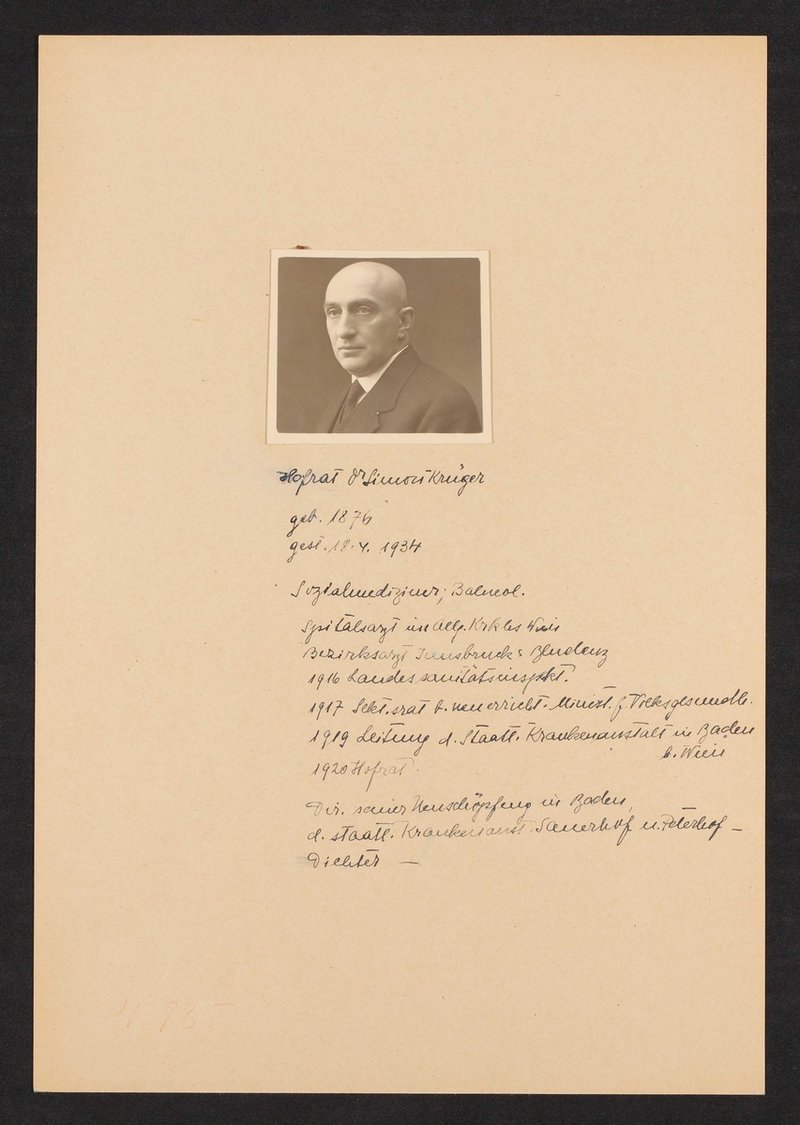 Hofrat Dr Simon Krüger
geb. 1876
gest. 18. 4. 1934
Sozialmediziner, Balneol.
Spitalsarzt im Allg. Krkhs Wien
Bezirksarzt Innsbruck: Bludenz
1916 Landessanitätsinspkt.
1917 Sekt. srat b. neuerricht. Minist. f. Volksgesundh.
1919 Leitung d. Staatl. Krankenanstalt in Baden
b. Wien
1920 Hofrat.
Dir. seiner Neuschöpfung in Baden,
d. staatl. Krankenanst. Sauerhof u. Peterhof –
Dichter –